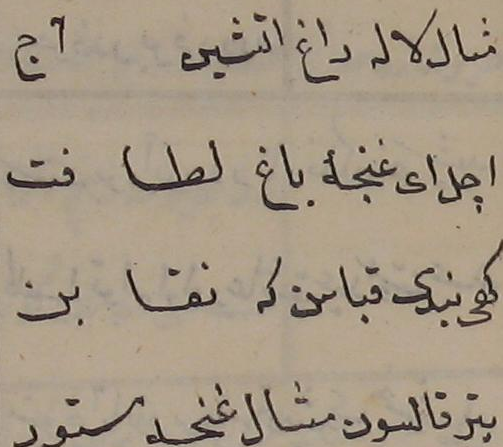 مثال لاله داغ اتشین آج
اچل ای غنچۀ باغ لطافت
بندی قباسن که نقابن
یتر قالسون مثال غنچه مستور